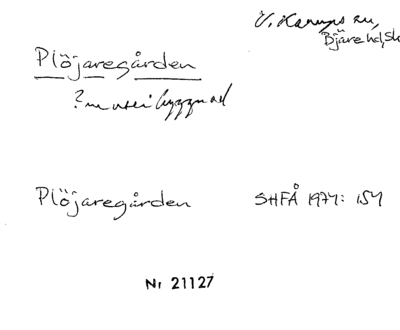 V. Karups sn,
Bjäre hd, Sk
Plöjaregården
Plöjaregården SHFÅ 1974: 154
Nr 21127